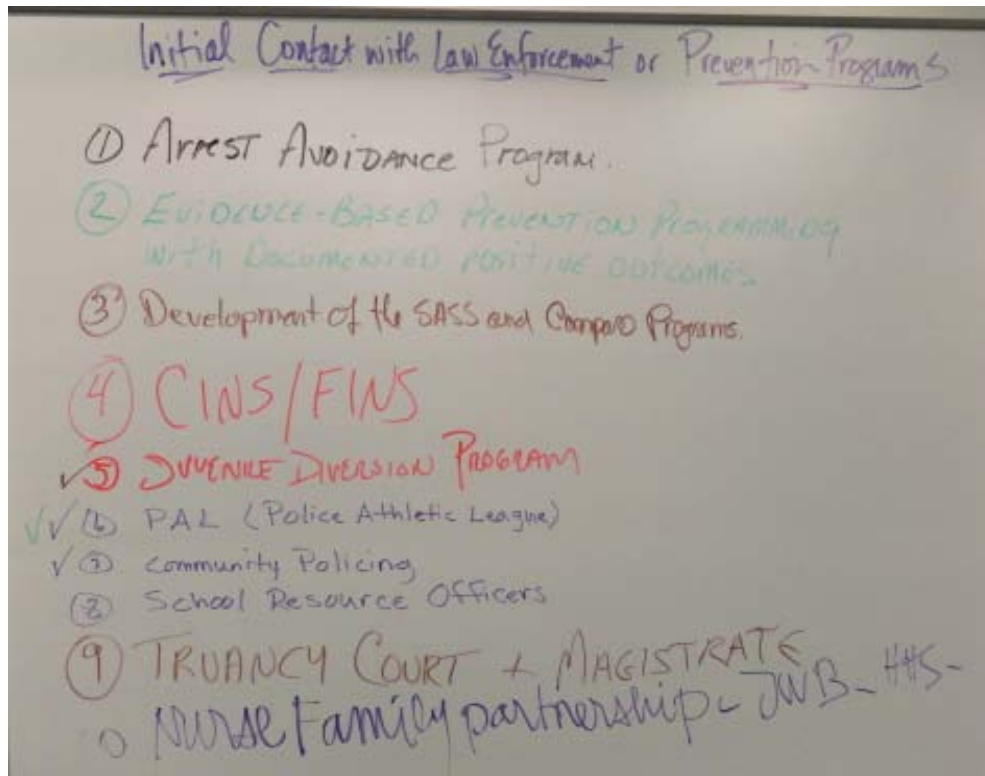 Initial Contact with Law Enforcement or Prevention Programs
① Arrest Avoidance Program.
② Evidence-Based Prevention Programming
with Documented positive outcomes.
③ Development of the SASS and Programs.
④ CINS/FINS
✓⑤ Juvenile Diversion Program
✓✓⑥ PAL (Police Athletic League)
✓⑦ Community Policing
⑧ School Resource Officers
⑨ TRUANCY COURT + MAGISTRATE
Nurse Family partnership - JWB - HHS -